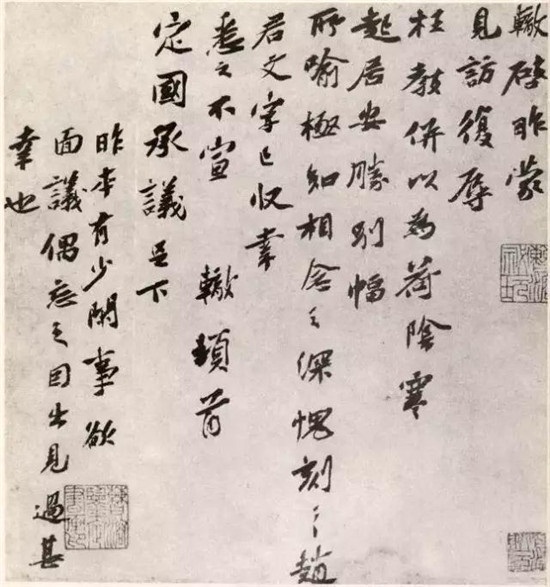 轍啓昨蒙
見訪復辱
枉教併以為荷陰寒
起居安勝別幅
所喻極知相念之深愧刻〻趙
君文字已収幸
悉之不宣 轍頓首
定國承議足下
昨本有少閑事欲
面議偶忘之因出見過甚
幸也